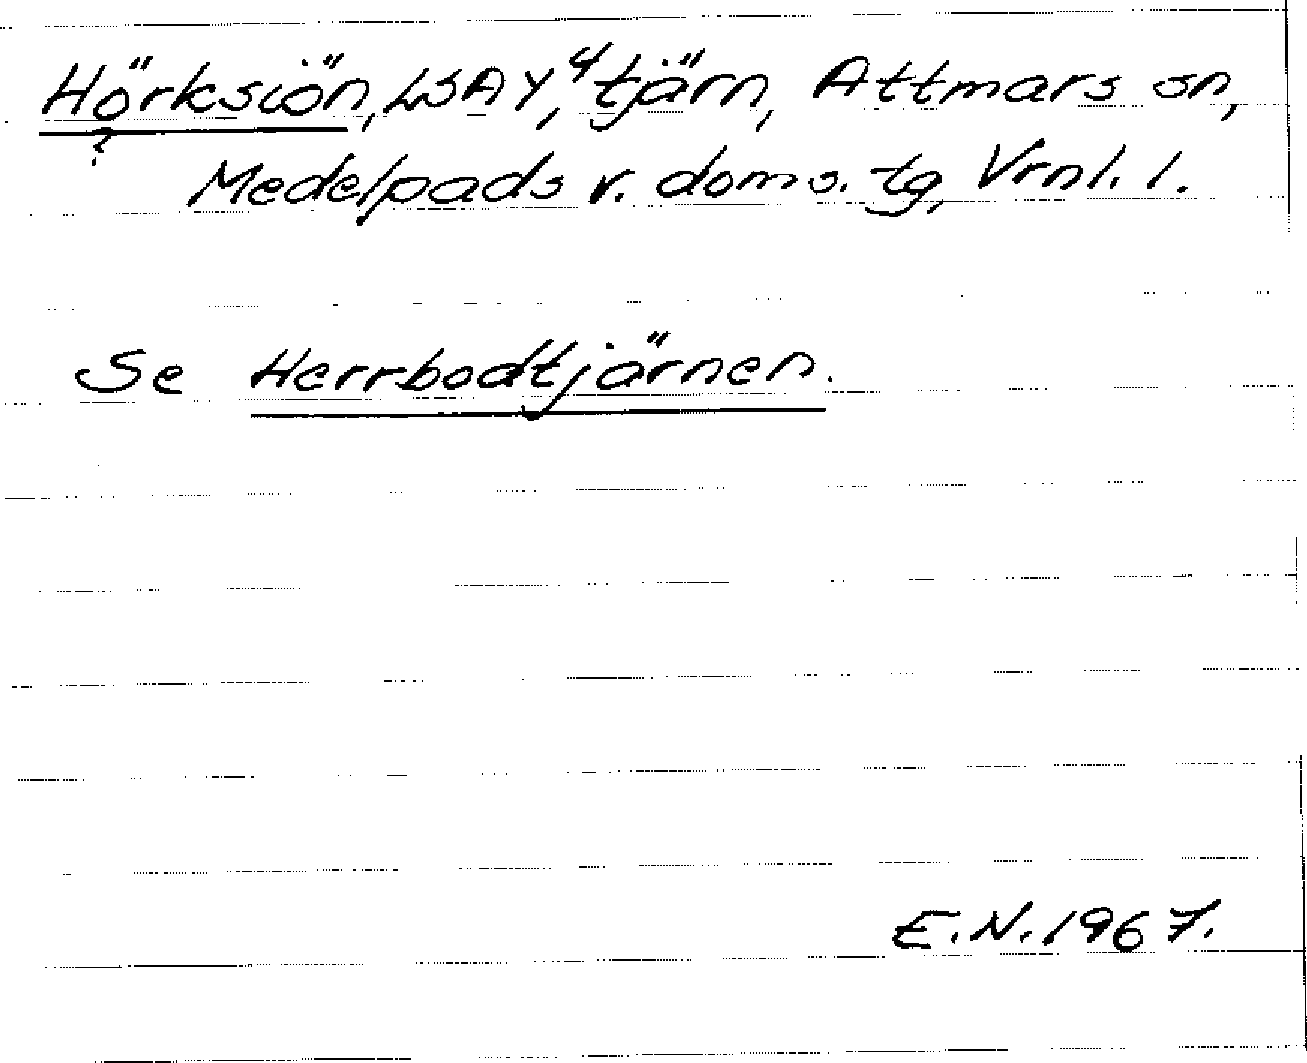 Hörksiön, LSA Y,4 tjärn, Attmars sn,
?
Medelpads v. doms. tg, Vrnl. l.
Se Herrbodtjärnen.
E.N. 1967.